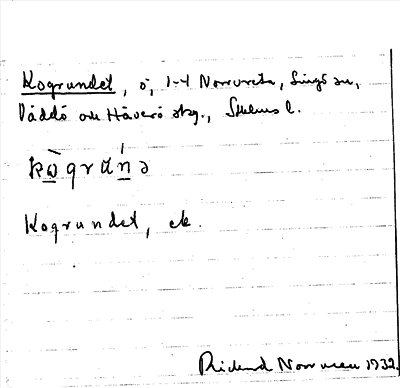 Kogrundet, ö, 1-4 Norrveta, Singö sn,
Väddö och Häverö skg., Sthlms l.
kògrúnə
Kogrundet, ek.
Rickard Norrman 1932.